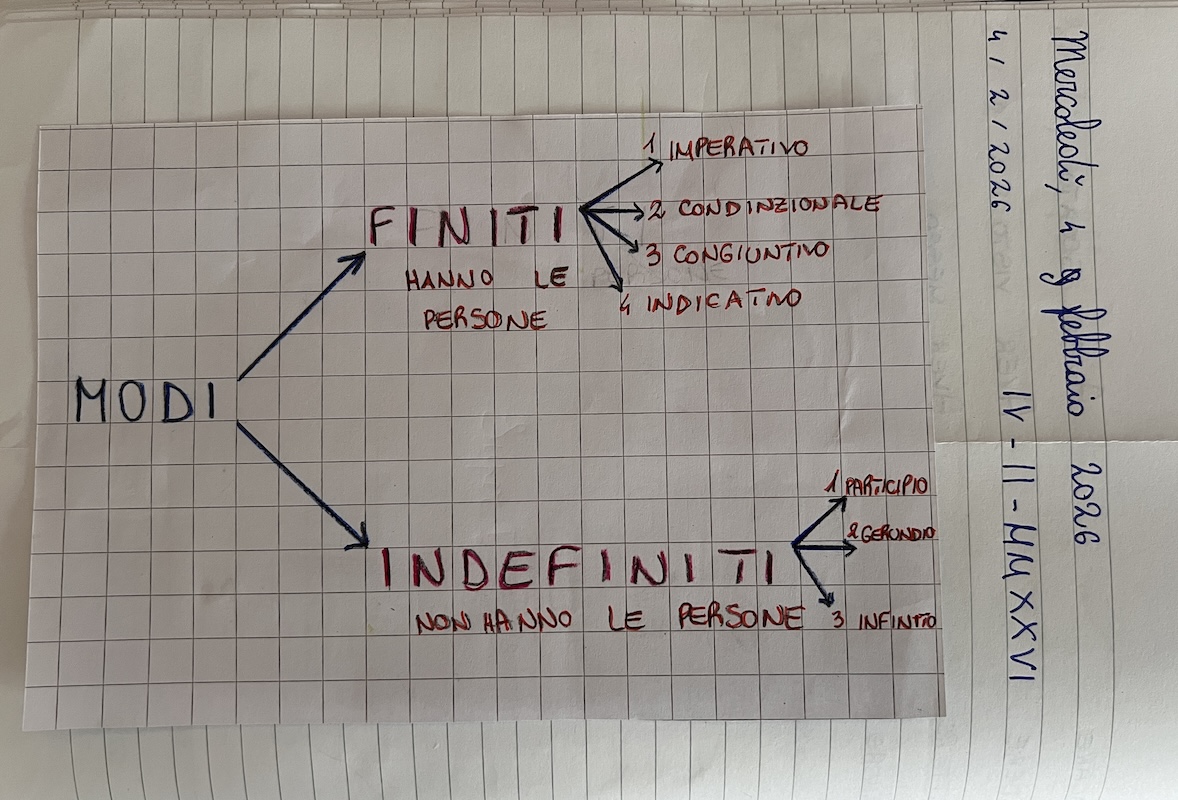 Mercoledì, 4 febbraio 2026
4 / 2 / 2026 IV - II - MMXXVI
MODI
FINITI
HANNO LE
PERSONE
1 IMPERATIVO
2 CONDINZIONALE
3 CONGIUNTIVO
4 INDICATIVO
INDEFINITI
NON HANNO LE PERSONE
1 PARTICIPIO
2 GERUNDIO
3 INFINITO